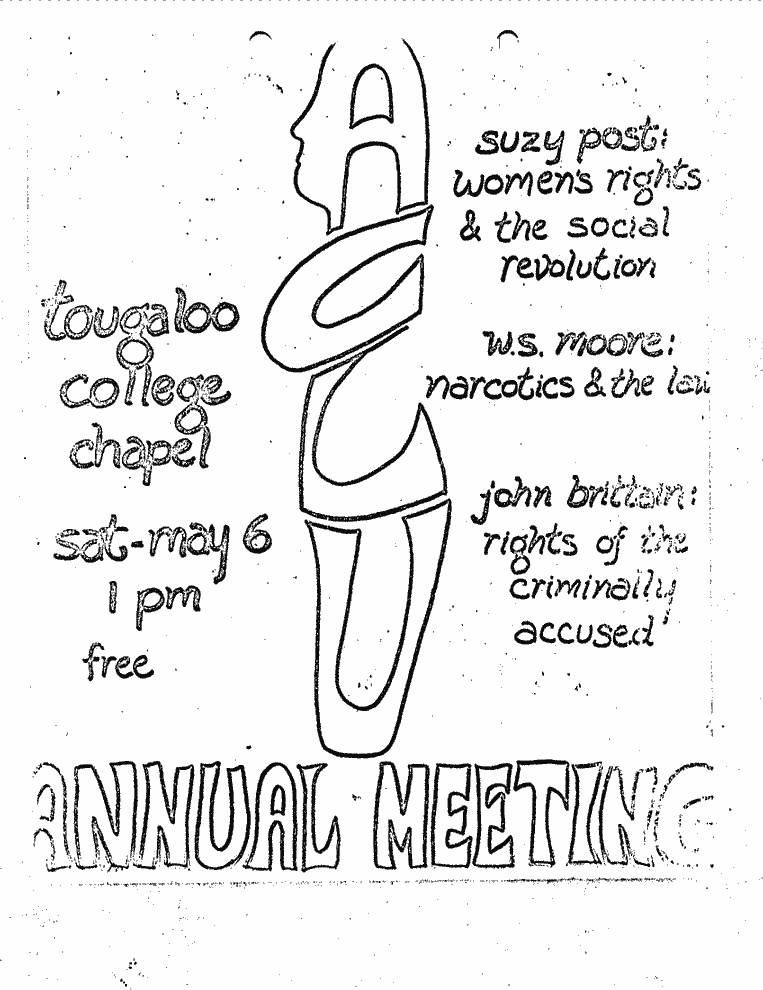 ACLU
suzy post:
women's rights
& the social
revolution
tougaloo
college
chapel
sat-may 6
1 pm
free
w.s. moore:
narcotics & the law
john brittain:
rights of the
criminally
accused
ANNUAL MEETING